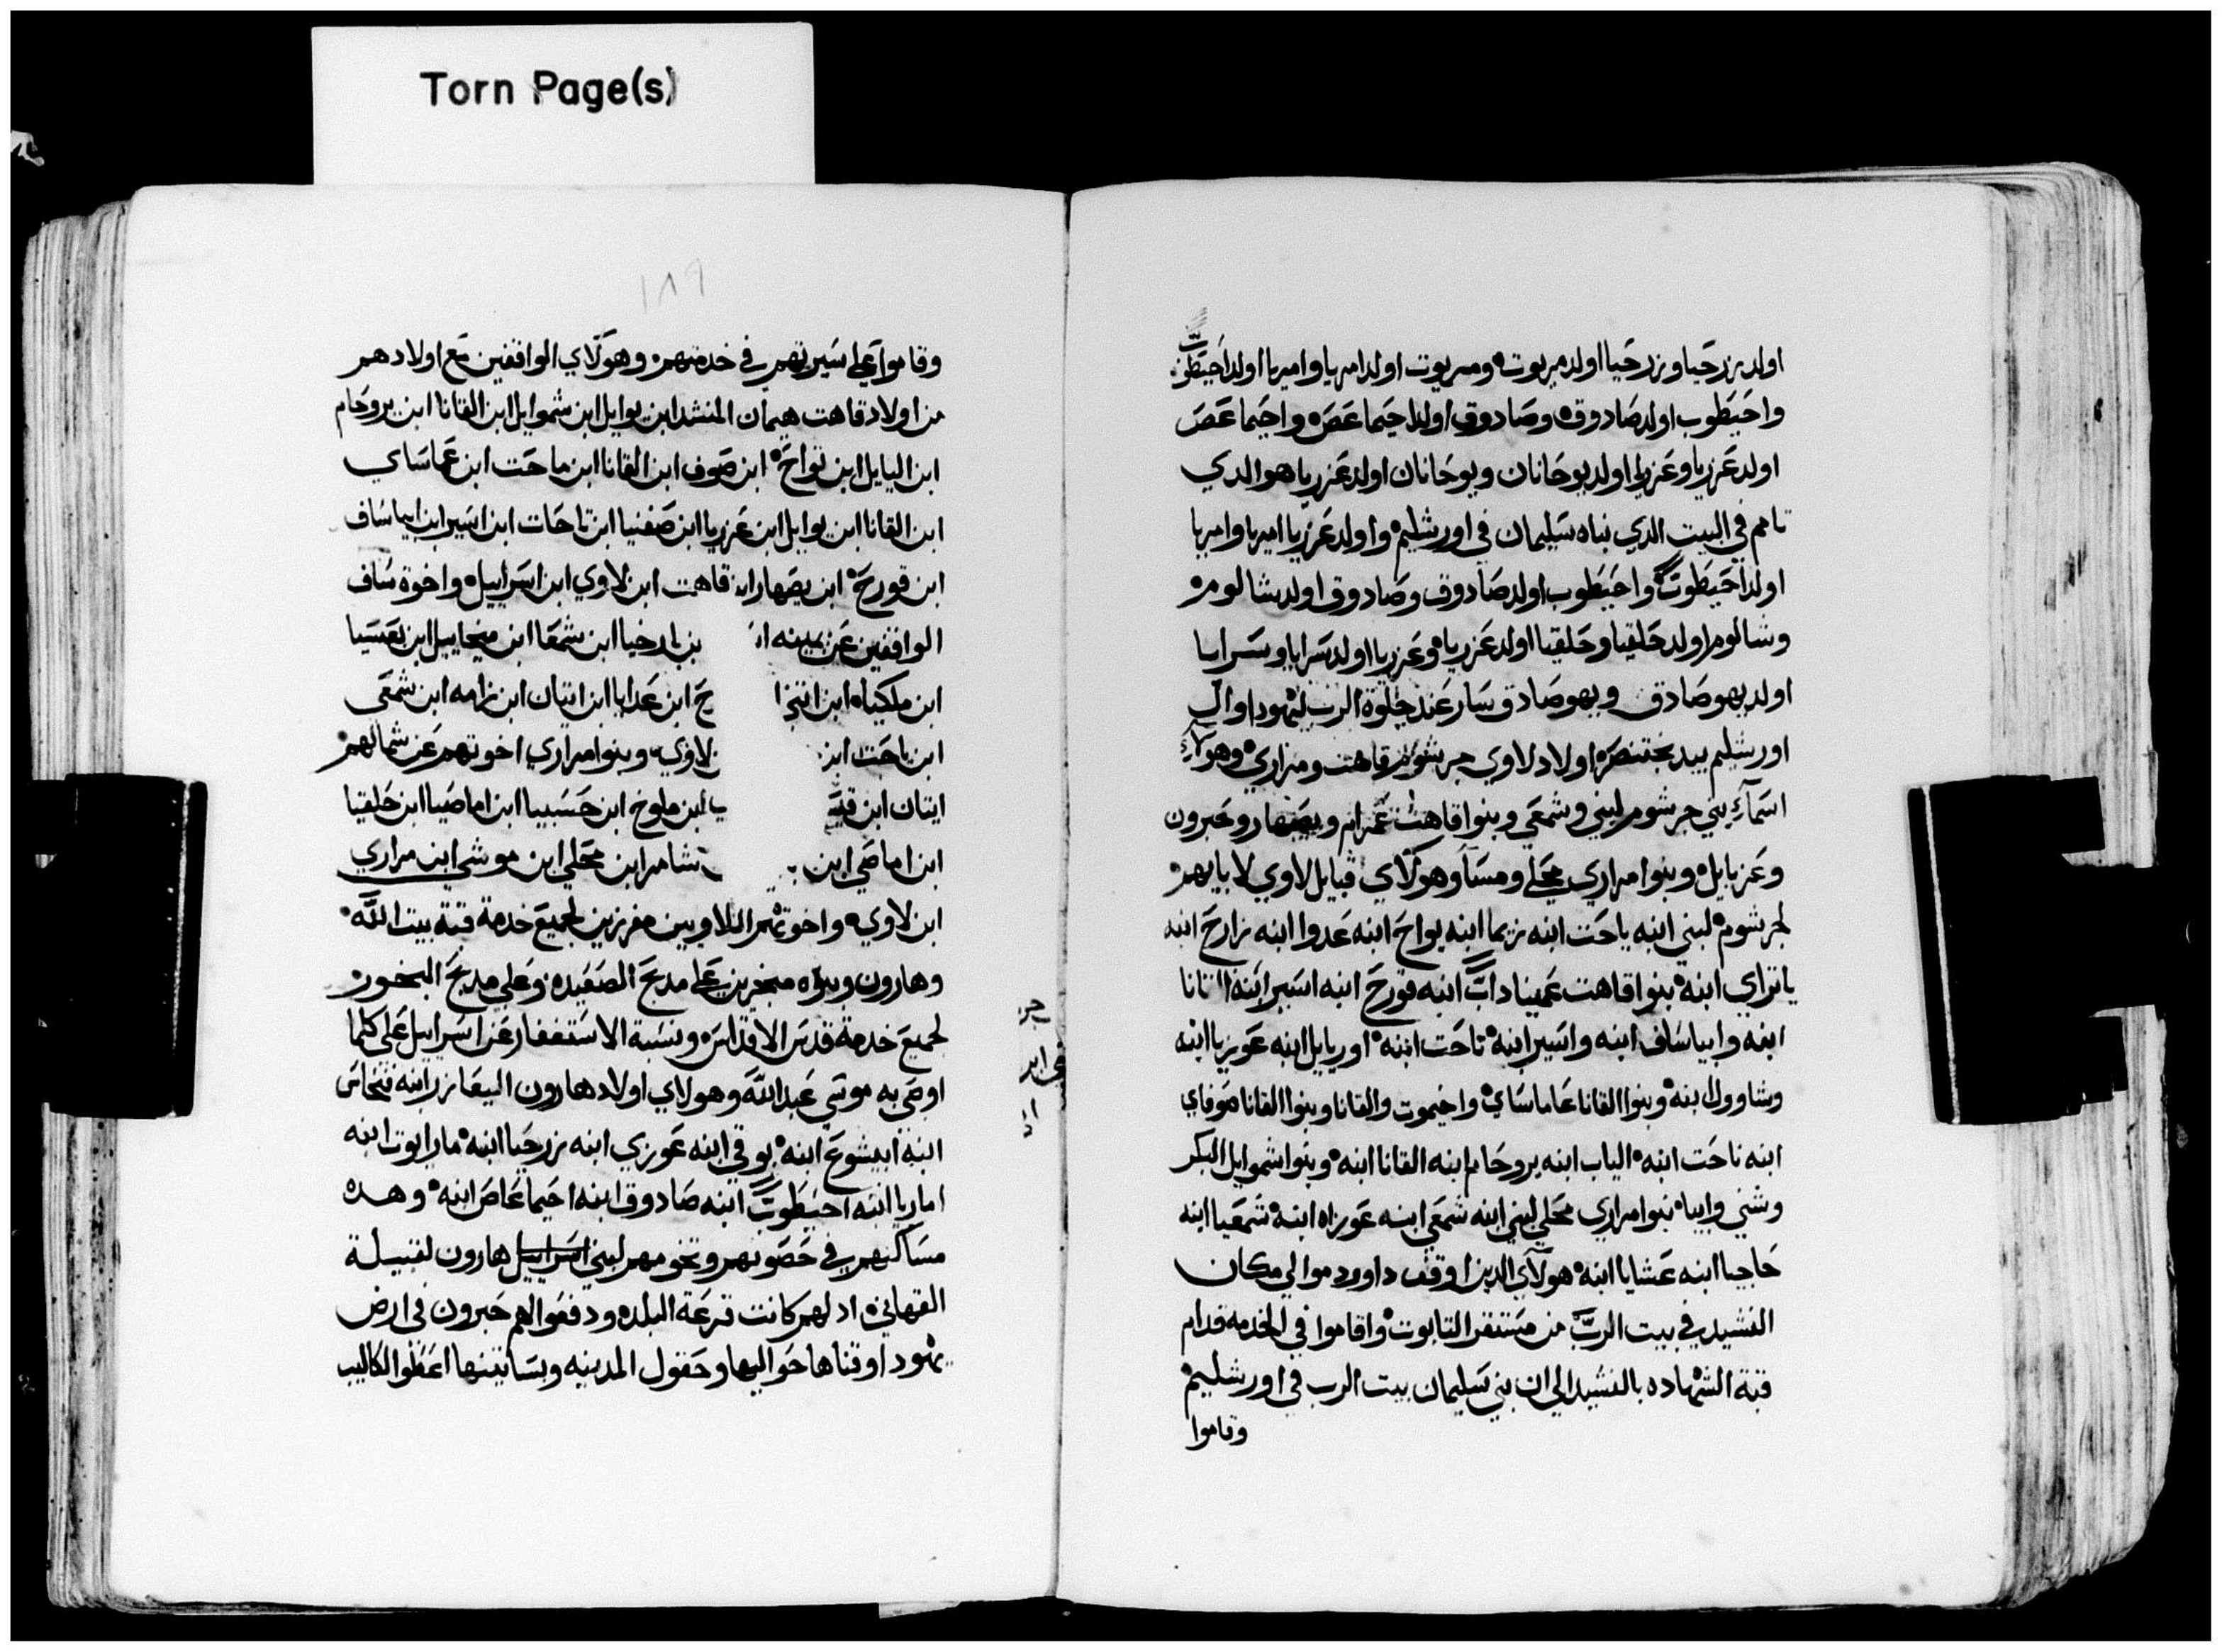 Torn Page(s)
اولد زرحيا وزرحيا اولد مريوت ومريوت اولد امريا وامريا اولد احيطوب
واحيطوب اولد صادوق وصادوق اولد احيما عص واحيما عص
اولد عزريا وعزريا اولد يوحانان ويوحانان اولد عزريا هو الدي
تامم في البيت الدي بناه سليمان في اورشليم واولد عزريا امريا وامريا
اولد احيطوب واحيطوب اولد صادوق وصادوق اولد شالوم
وشالوم اولد حلقيا وحلقيا اولد عزريا وعزريا اولد سرايا وسرايا
اولد يهوصادق ويهوصادق سار عند جلوة الرب ليهودا وال
اورشليم بيد بختنصر اولاد لاوي جرشوم قاهت ومراري وهولاء
اسماء بني جرشوم لبني وشمعي وبنوا قاهت عمرام ويصهار وحبرون
وعزيايل وبنوا مراري محلي ومسا وهولاي قبايل لاوي لابايهم
لجرشوم لبني ابنه ياحت ابنه زيما ابنه يواح ابنه عدوا ابنه زارح ابنه
ياتراي ابنه بنوا قاهت عميناداب ابنه قورح ابنه اسير ابنه القانا
ابنه وابياساف ابنه واسير ابنه تاحت ابنه اوريايل ابنه عوزيا ابنه
وشاوول ابنه وبنوا القانا عاماساي واخيموت والقانا وبنوا القانا صوفاي
ابنه ناحت ابنه الياب ابنه يروحام ابنه القانا ابنه وبنوا شموايل البكر
وشني وابيا بنوا مراري محلي لبني ابنه شمعي ابنه عوزاه ابنه شمعيا ابنه
حاجيا ابنه عشايا ابنه هولاي الدين اوقف داوود موالي مكان
النشيد في بيت الرب من مستقر التابوت واقاموا في الخدمه قدام
قبة الشهاده بالنشيد الي ان بني سليمان بيت الرب في اورشليم
وقاموا
١٨٩
وقاموا علي سيرتهم في خدمتهم وهولاي الواقفين مع اولادهم
من اولاد قاهت هيمان المنشد ابن يوايل ابن شموايل ابن القانا ابن يروحام
ابن اليايل ابن تواح ابن صوف ابن القانا ابن ماحت ابن عماساي
ابن القانا ابن يوايل ابن عزريا ابن صفنيا ابن تاحات ابن اسير ابن ابياساف
ابن قورح ابن يصهار ابن قاهت ابن لاوي ابن اسراييل واخوة ساف
الواقفين عن يمينه ا بن بارخيا ابن شمعا ابن ميخاييل ابن بعسيا
ابن ملكياه ابن اتني ا ح ابن عدايا ابن ايتان ابن زامه ابن شمعي
ابن ياحت ابن لاوي وبنوا مراري اخوتهم عن شمالهم
ايتان ابن ابن ملوخ ابن حسبيا ابن اماصيا ابن حلقيا
ابن اماصي ابن شامر ابن محلي ابن موشي ابن مراري
ابن لاوي واخوتهم اللاويين مفرزين لجميع خدمة قبة بيت الله
وهارون وبنوه مبخرين علي مدبح الصعيده وعلي مدبح البخور
لجميع خدمة قدس الاقداس ونسبة الاستغفار عن اسراييل علي كلما
اوصي به موسي عبد الله وهولاي اولاد هارون اليعازر ابنه فنحاس
ابنه ابيشوع ابنه بوقي ابنه عوزي ابنه زرحيا ابنه مارايوت ابنه
اماريا ابنه احيطوب ابنه صادوق ابنه احيما عاص ابنه وهده
مساكنهم في حصونهم وتخومهم لبني اسراييل هارون لقبيلة
القهاتي اد لهم كانت قرعة البلده ودفعوا لهم حبرون في ارض
يهودا وقناها حواليها وحقول المدينه وبساتينها اعطوا لكاليب